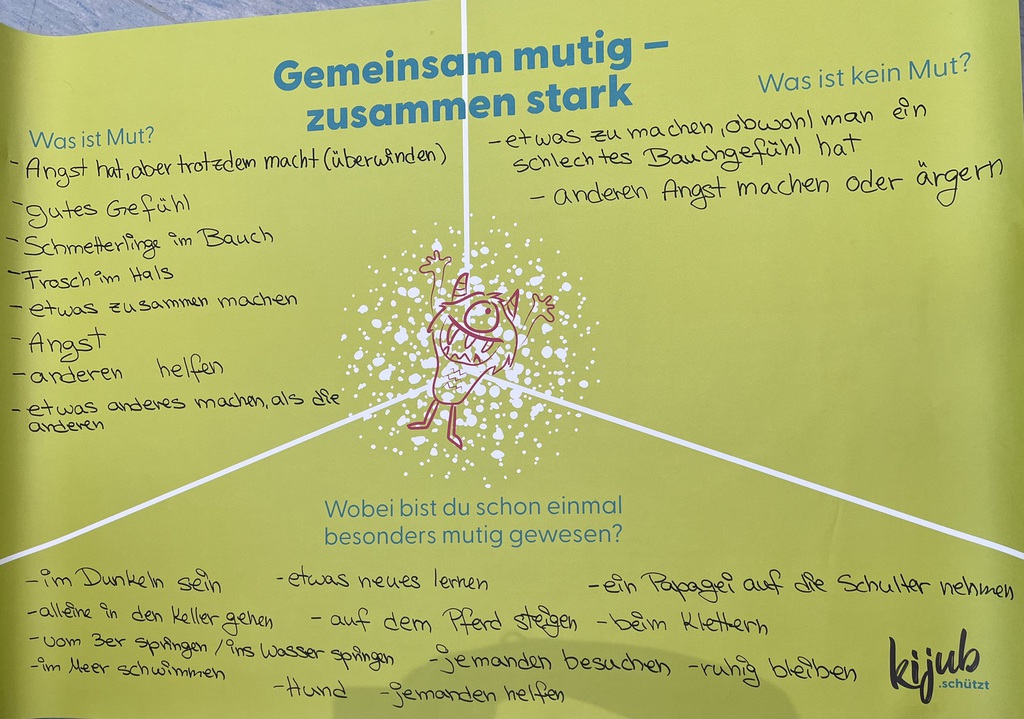 Gemeinsam mutig –
zusammen stark
Was ist Mut?
- Angst hat, aber trotzdem macht (überwinden)
- gutes Gefühl
- Schmetterlinge im Bauch
- Frosch im Hals
- etwas zusammen machen
- Angst
- anderen helfen
- etwas anderes machen, als die
anderen
Was ist kein Mut?
- etwas zu machen, obwohl man ein
schlechtes Bauchgefühl hat
- anderen Angst machen oder ärgern
Wobei bist du schon einmal
besonders mutig gewesen?
- im Dunkeln sein - etwas neues lernen - ein Papagei auf die Schulter nehmen
- alleine in den Keller gehen - auf dem Pferd steigen - beim Klettern
- vom 3er springen / ins Wasser springen - jemanden besuchen - ruhig bleiben
- im Meer schwimmen - Hund - jemanden helfen
kijub
.schützt